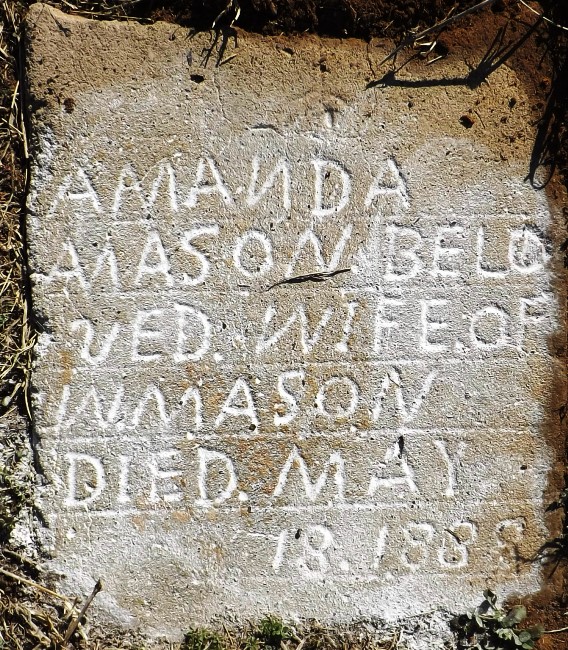 AMANDA
MASON. BELO
VED. WIFE. OF
WM MASON
DIED. MAY
18. 1888